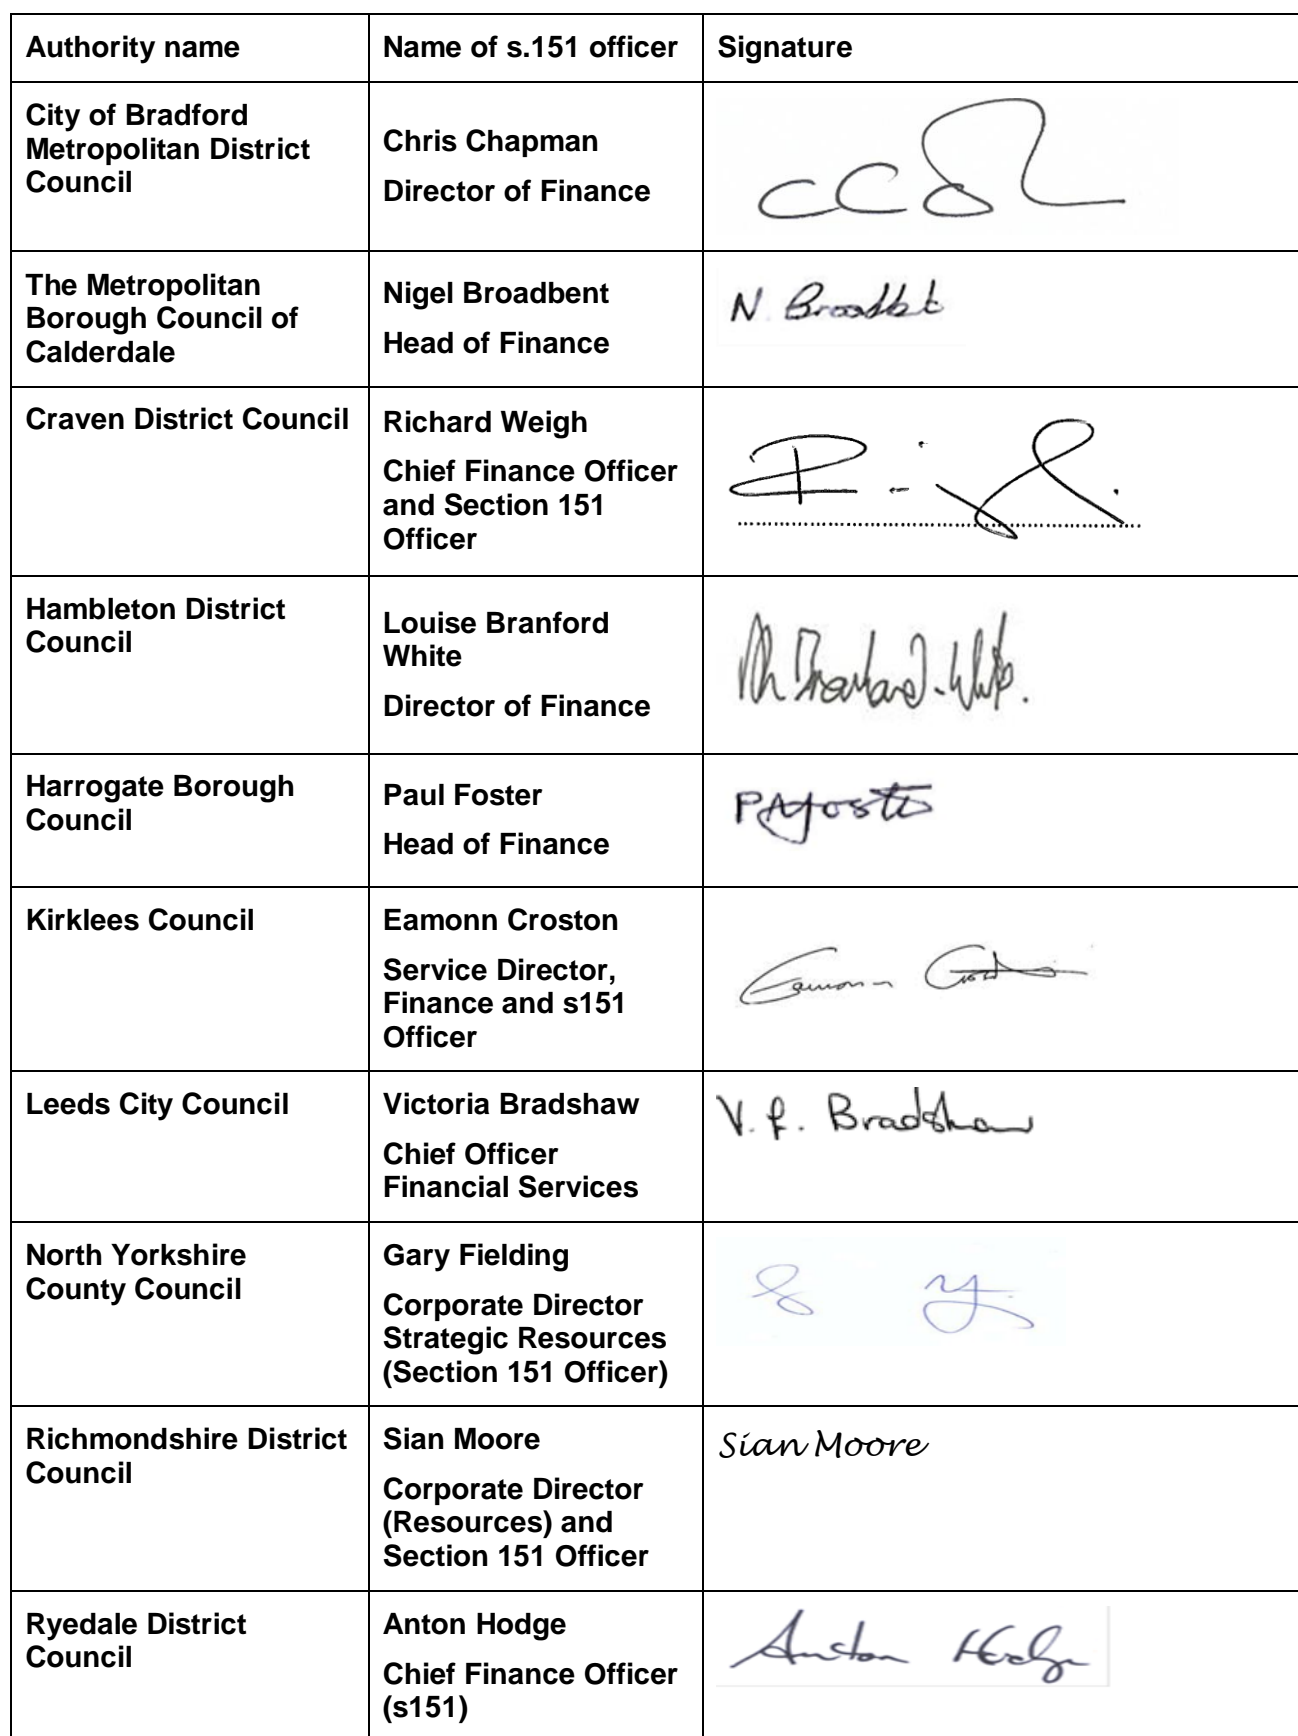 Authority name
Name of s.151 officer
Signature
City of Bradford
Metropolitan District
Council
Chris Chapman
Director of Finance
The Metropolitan
Borough Council of
Calderdale
Nigel Broadbent
Head of Finance
N. Broadbt
Craven District Council
Richard Weigh
Chief Finance Officer
and Section 151
Officer
Hambleton District
Council
Louise Branford
White
Director of Finance
Branford-White.
Harrogate Borough
Council
Paul Foster
Head of Finance
PAFoster
Kirklees Council
Eamonn Croston
Service Director,
Finance and s151
Officer
Eamonn
Leeds City Council
Victoria Bradshaw
Chief Officer
Financial Services
V. Bradshaw
North Yorkshire
County Council
Gary Fielding
Corporate Director
Strategic Resources
(Section 151 Officer)
Richmondshire District
Council
Sian Moore
Corporate Director
(Resources) and
Section 151 Officer
Sian Moore
Ryedale District
Council
Anton Hodge
Chief Finance Officer
(s151)
Anton Hodge